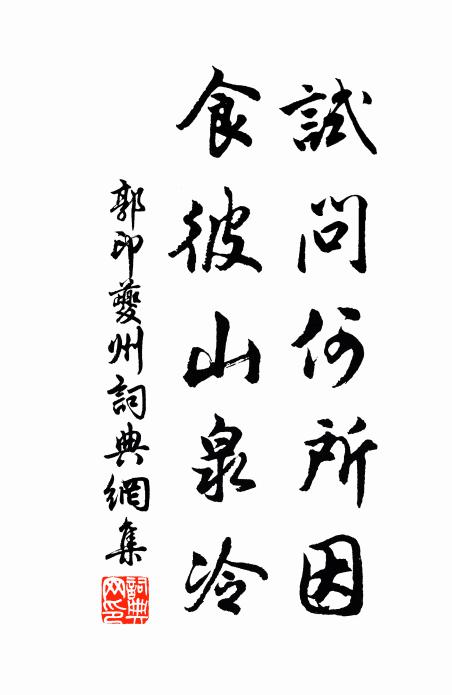 試問何所因
食彼山泉冷
郭印夔州詞典網集
詞典網印